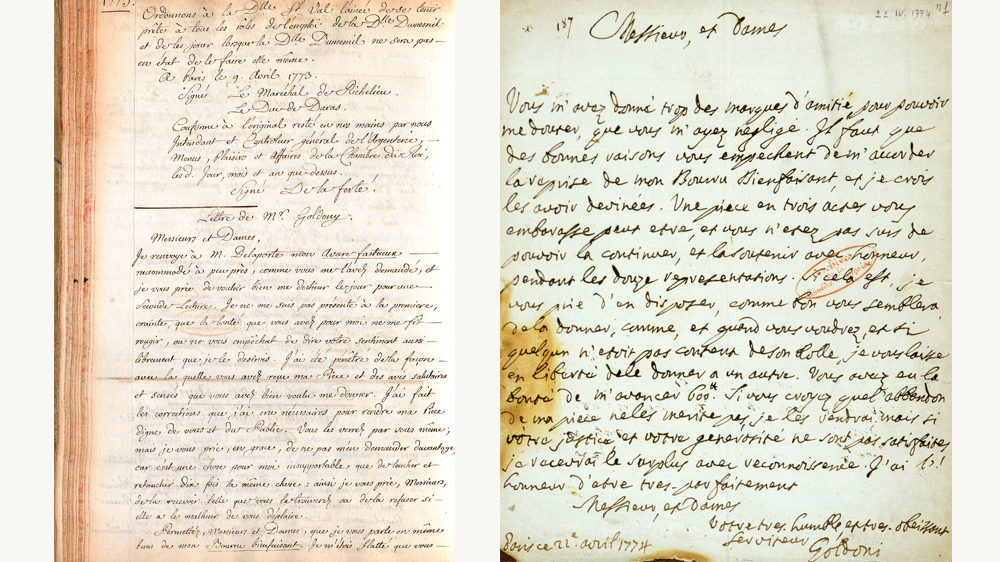 1773.
Ordonnons à la Dlle St Val lainée de se tenir
prete à tous les rôles de l'emploi de la Dlle Dumesnil
et de les jouer lorsque la Dlle Dumenil ne sera pas
en état de le faire elle même.
À Paris le 9. Avril 1773.
Signé Le Maréchal de Richelieu.
Le Duc de Duras.
Conforme à l'original resté en nos mains par nous
Intendant et Controleur général de l'Argenterie,
Menus, Plaisirs et Affaires de la Chambre du Roi,
les d. Jour, mois et an que dessus.
Signé De la ferté.
Lettre de Mr. Goldony.
Messieurs et Dames,
Je renvoye à M. Delaporte mon Avare fastueux
raccommodé à peu près, comme vous me l'avez demandé, et
je vous prie de vouloir bien me destiner le jour pour une
Seconde Lecture. Je ne me suis pas présenté à la première,
crainte, que la bonté que vous avez pour moi ne me fit
rougir, ou ne vous empêchat de dire votre sentiment aussi
librement que je le desirois. J'ai été pénétré de la façon
avec la quelle vous avez reçu ma Pièce et des avis salutaires
et sensés que vous avez bien voulu me donner. J'ai fait
les corrections que j'ai cru necessaires pour rendre ma Piece
digne de vous et du Public. Vous les verrez par vous même;
mais, je vous prie, en grace, de ne pas m'en demander davantage
car c'est une chose pour moi insupportable que de toucher et
retoucher dix fois la même chose: ainsi je vous prie, Messieurs,
de la recevoir telle que vous la trouverez ou de la refuser si
elle a le malheur de vous déplaire.
Permettez, Messieurs et Dames, que je vous parle en même
tems de mon Bourru bienfaisant. Je m'étois flatté que vous
187
22 IV. 1774
Messieurs, et Dames
Vous m'avez donné trop des marques d'amitié, pour pouvoir
me douter, que vous m'ayez negligé. Il faut que
des bonnes raisons vous empechent de m'accorder
la reprise de mon Bourru Bienfaisant, et je crois
les avoir devinées. Une piece en trois actes vous
embarasse peut etre, et vous n'etez pas surs de
pouvoir la continuer, et la soutenir avec honneur
pendant les douze representations. Si cela est, je
vous prie d'en disposer, comme bon vous semblera
de la donner, comme, et quand vous voudrez, et si
quelqun n'etoit pas content de son Rolle, je vous laisse
en liberté de le donner a un autre. Vous avez eu la
bonté de m'avancer 600tt. Si vous croyez quel'abbandon
de ma piece ne les merite pas, je les rendrai mais si
votre justice et votre generosité ne sont pas satisfaites
je recevrai le surplus avec reconnoissence. J'ai l'
honneur d'etre tres parfaitement
Messieurs, et Dames
Votre tres humble, et tres obeissant
serviteur
Paris ce 22e avril 1774
Goldoni